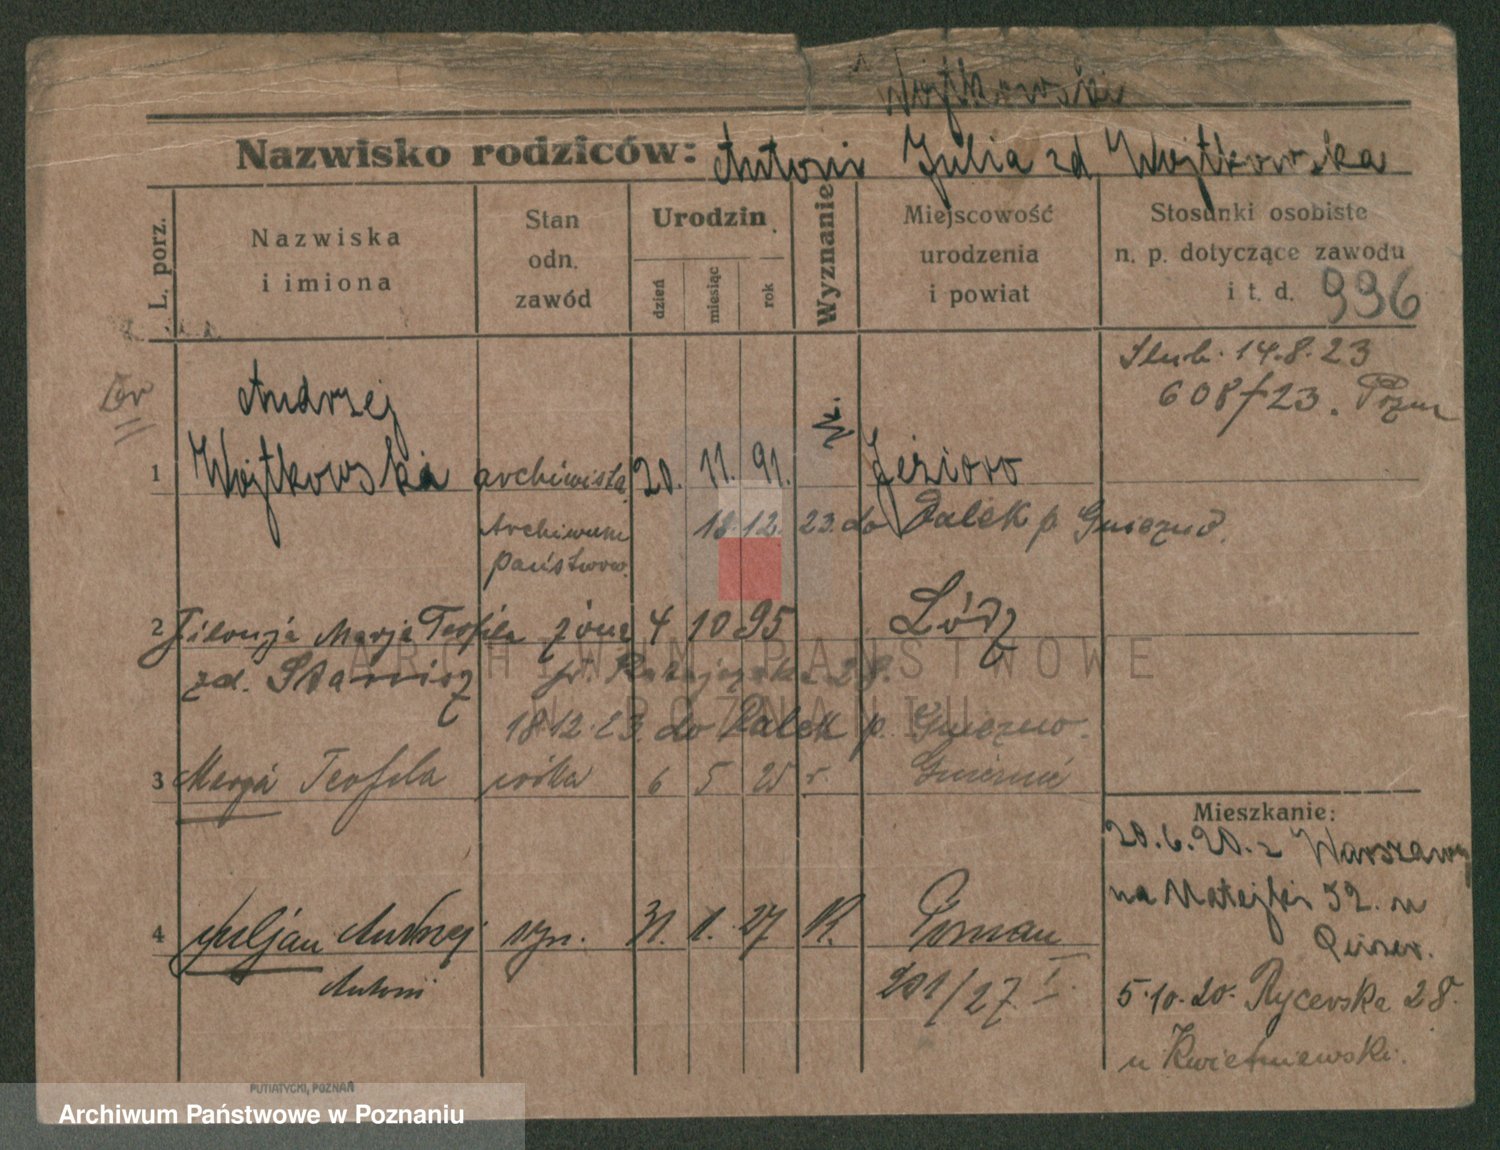 Wojtkowski
Nazwisko rodziców: Antoni Julia zd Wojtkowska
L. porz.
Nazwiska
i imiona
Stan
odn.
zawód
Urodzin
dzień
miesiąc
rok
Wyznanie
Miejscowość
urodzenia
i powiat
Stosunki osobiste
n. p. dotyczące zawodu
i t. d. 996
Ślub. 14.8.23
608/23. Pozn
1 Andrzej
Wojtkowski archiwista 20. 11. 91. Jezioro
Archiwum 18.12. 23. do Dalek p. Gniezno.
Państwow.
2 Marja Teofila żona 4 10 95 Łódź
zd. Ratajczaka 28.
18.12.23. do Dalek p. Gniezno.
3 Marja Teofila córka 6 5 25 r. Gnieźnie
Mieszkanie:
20.6.20. z Warszawy
na Matejki 52.
4 Juljan Andrzej syn. 31. 1. 27 R. Poznan
Antoni
201/27. I.
5.10.20. Rycerska 28.
u Kwietniewski.
PUTIATYCKI, POZNAŃ
ARCHIWUM PAŃSTWOWE
W POZNANIU
Archiwum Państwowe w Poznaniu